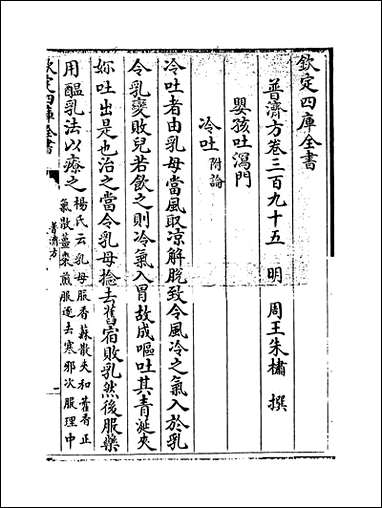 欽定四庫全書
普濟方卷三百九十五 明 周王朱橚 撰
嬰孩吐瀉門
冷吐 附論
冷吐者由乳母當風取凉解脫致令風冷之氣入於乳
令乳變敗兒若飲之則冷氣入胃故成嘔吐其青涎夾
妳吐出是也治之當令乳母捻去舊宿敗乳然後服藥
用醞乳法以療之 楊氏云乳母服香蘇散夫和藿香正
氣散薑棗煎服逐去寒邪次服理中
欽定四庫全書
普濟方
一